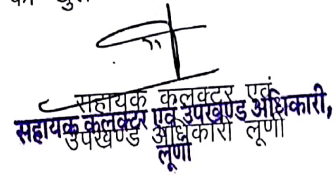 सहायक कलक्टर एवं
उपखण्ड अधिकारी लूणी
सहायक कलक्टर एवं उपखण्ड अधिकारी,
लूणी